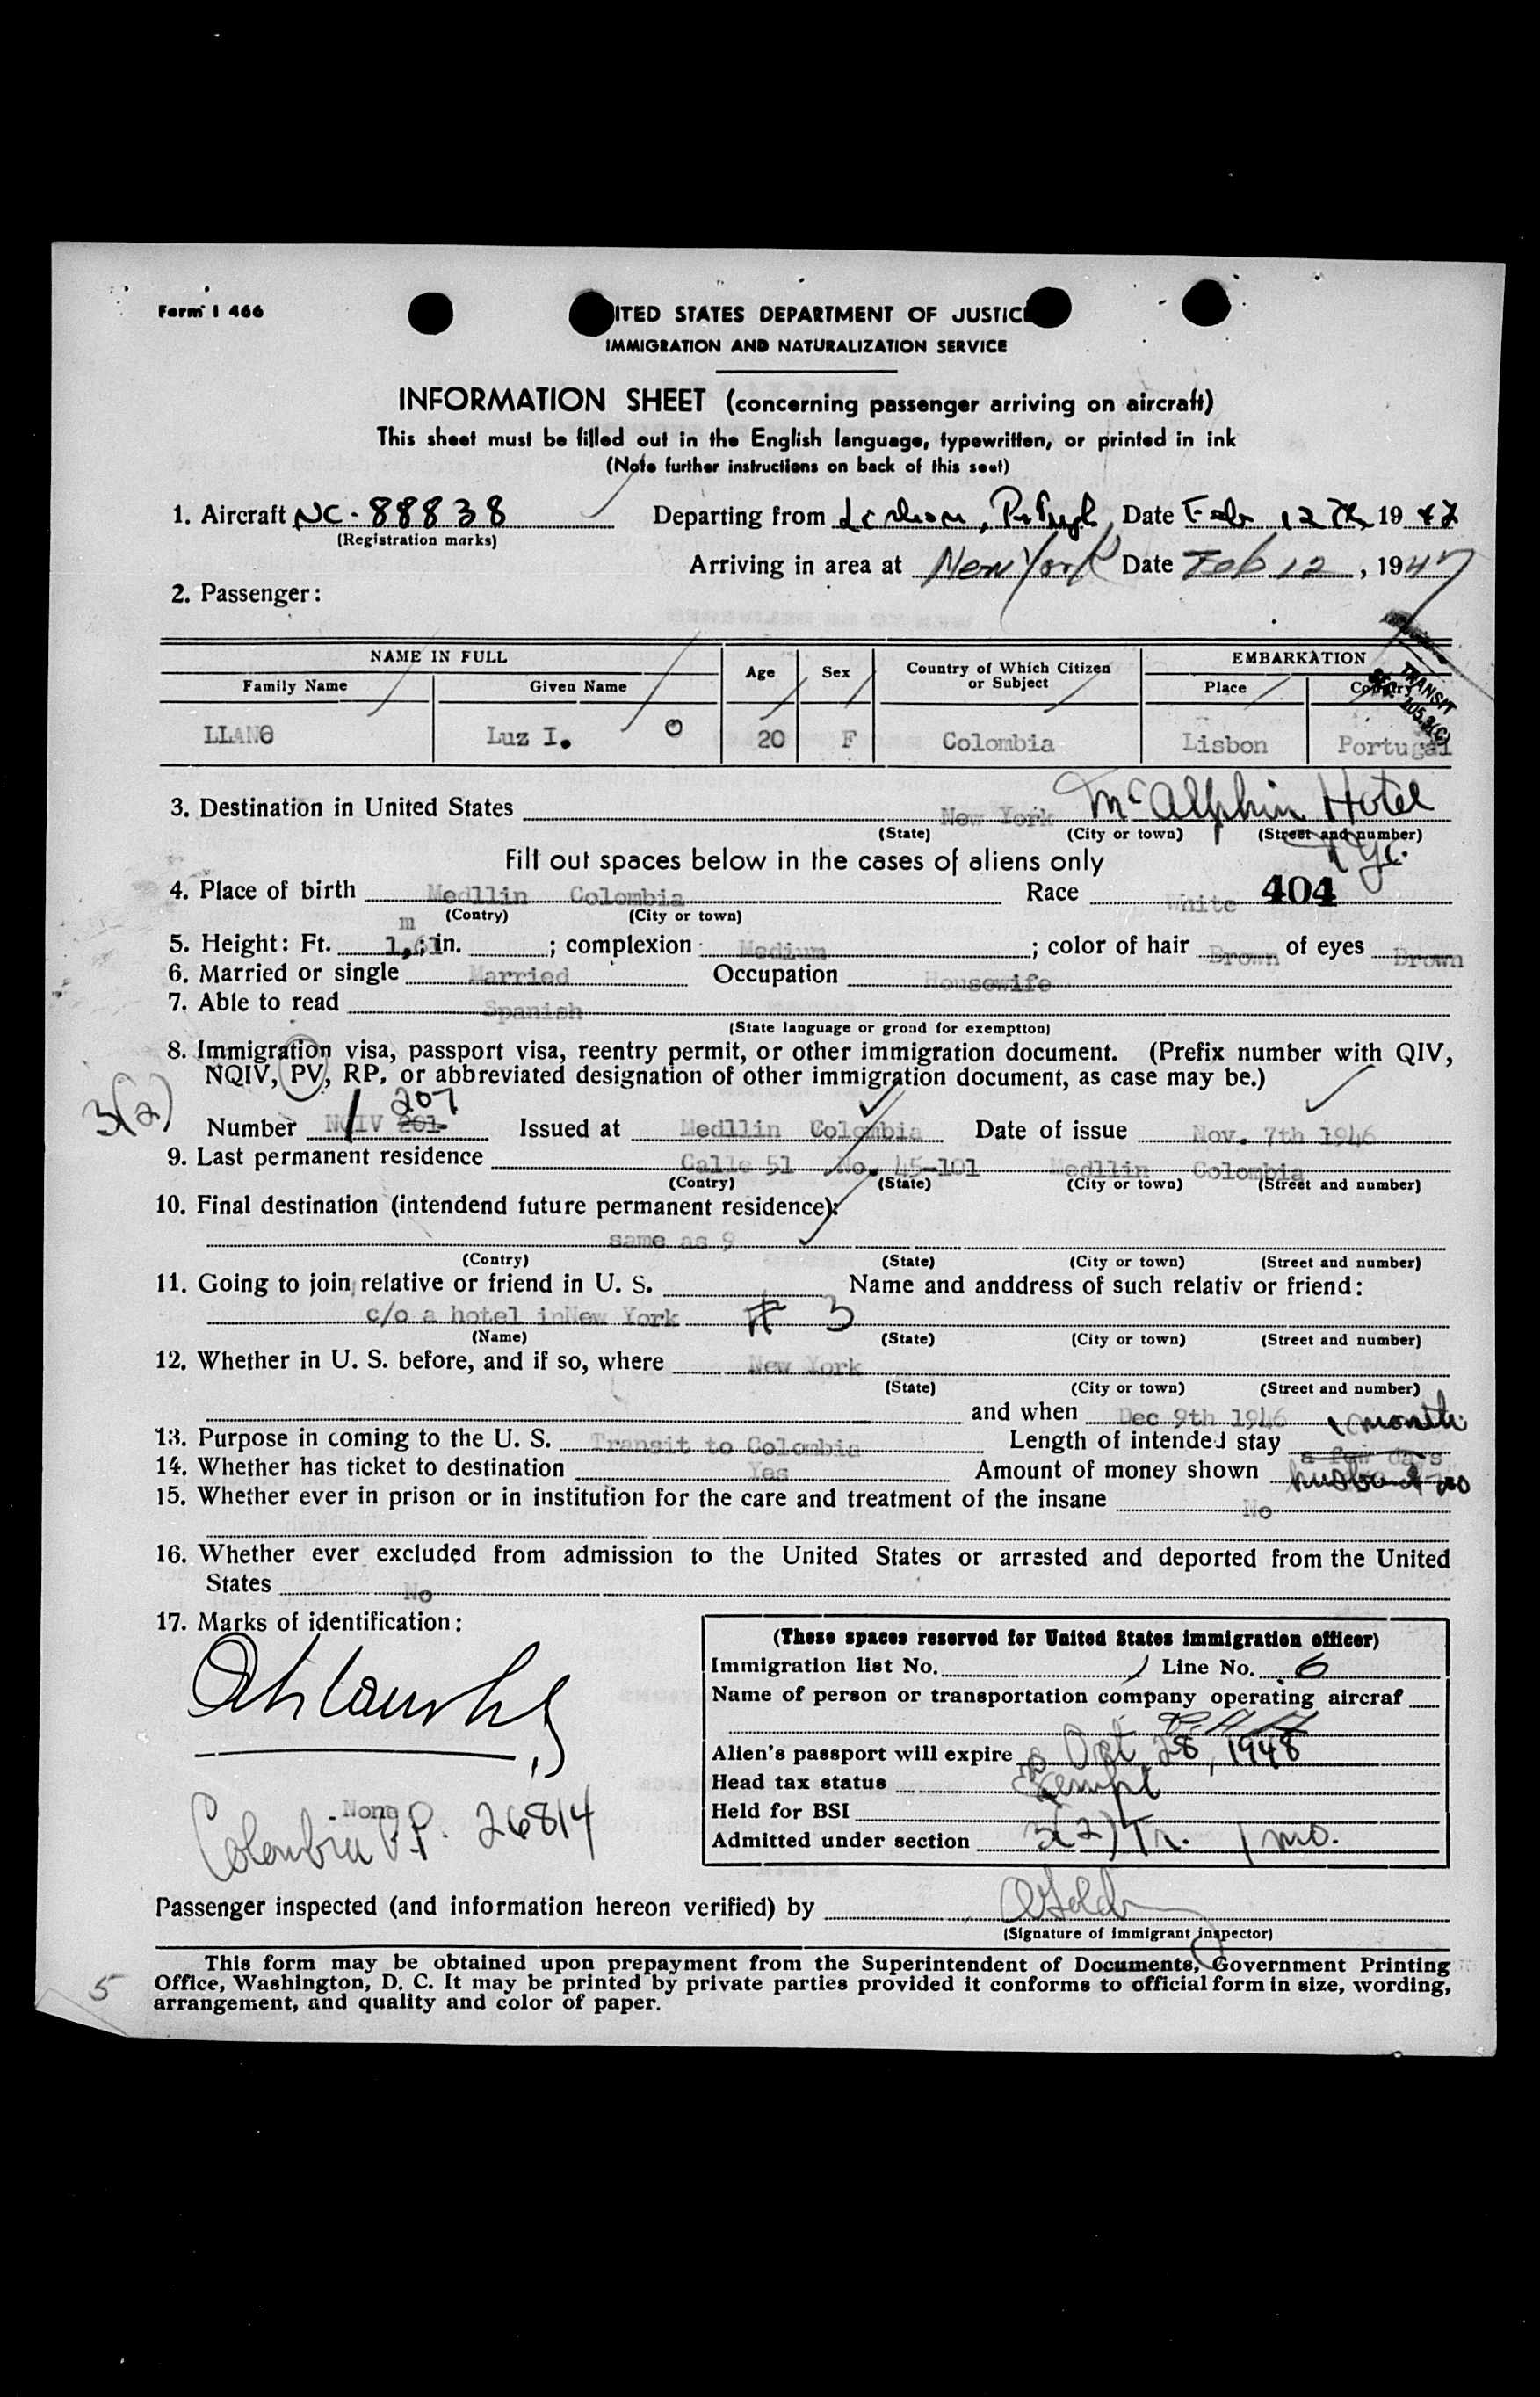 Form I 466
ITED STATES DEPARTMENT OF JUSTIC
IMMIGRATION AND NATURALIZATION SERVICE
INFORMATION SHEET (concerning passenger arriving on aircraft)
This sheet must be filled out in the English language, typewritten, or printed in ink
(Note further instructions on back of this seet)
1. Aircraft NC-88838 Departing from Lisbon, Portugl, Date Feb 12th 1947
(Registration marks)
Arriving in area at New York Date Feb 12, 1947
2. Passenger:
NAME IN FULL Age Sex Country of Which Citizen or Subject EMBARKATION
Family Name Given Name Place Country
TRANSIT
SEC. 105.3(C)
LLANO Luz I. O 20 F Colombia Lisbon Portugal
3. Destination in United States New York McAlphin Hotel
(State) (City or town) (Street and number)
NYC.
Fill out spaces below in the cases of aliens only
4. Place of birth Medllin Colombia Race White 404
(Contry) (City or town)
m
5. Height: Ft. 1,61 in. ; complexion Medium ; color of hair Brown of eyes Brown
6. Married or single Married Occupation Housewife
7. Able to read Spanish
(State language or groad for exemptton)
8. Immigration visa, passport visa, reentry permit, or other immigration document. (Prefix number with QIV,
NQIV, PV, RP, or abbreviated designation of other immigration document, as case may be.)
3(2) 207
Number NQIV 201 Issued at Medllin Colombia Date of issue Nov. 7th 1946
9. Last permanent residence Calle 51 No. 45-101 Medllin Colombia
(Contry) (State) (City or town) (Street and number)
10. Final destination (intendend future permanent residence):
same as 9
(Contry) (State) (City or town) (Street and number)
11. Going to join relative or friend in U. S. Name and anddress of such relativ or friend:
c/o a hotel inNew York # 3
(Name) (State) (City or town) (Street and number)
12. Whether in U. S. before, and if so, where New York
(State) (City or town) (Street and number)
and when Dec 9th 1946 1 month
13. Purpose in coming to the U. S. Transit to Colombia Length of intended stay a few days
14. Whether has ticket to destination Yes Amount of money shown husband 200
15. Whether ever in prison or in institution for the care and treatment of the insane No
16. Whether ever excluded from admission to the United States or arrested and deported from the United
States No
17. Marks of identification:
None
Colombia P.P. 26814
(These spaces reserved for United States immigration officer)
Immigration list No. 1 Line No. 6
Name of person or transportation company operating aircraf
P.A.A
Alien's passport will expire Oct 28, 1948
Head tax status Exempt
Held for BSI
Admitted under section 3(2) Tr. 1 mo.
Passenger inspected (and information hereon verified) by
(Signature of immigrant inspector)
This form may be obtained upon prepayment from the Superintendent of Documents, Government Printing
Office, Washington, D. C. It may be printed by private parties provided it conforms to official form in size, wording,
arrangement, and quality and color of paper.
5